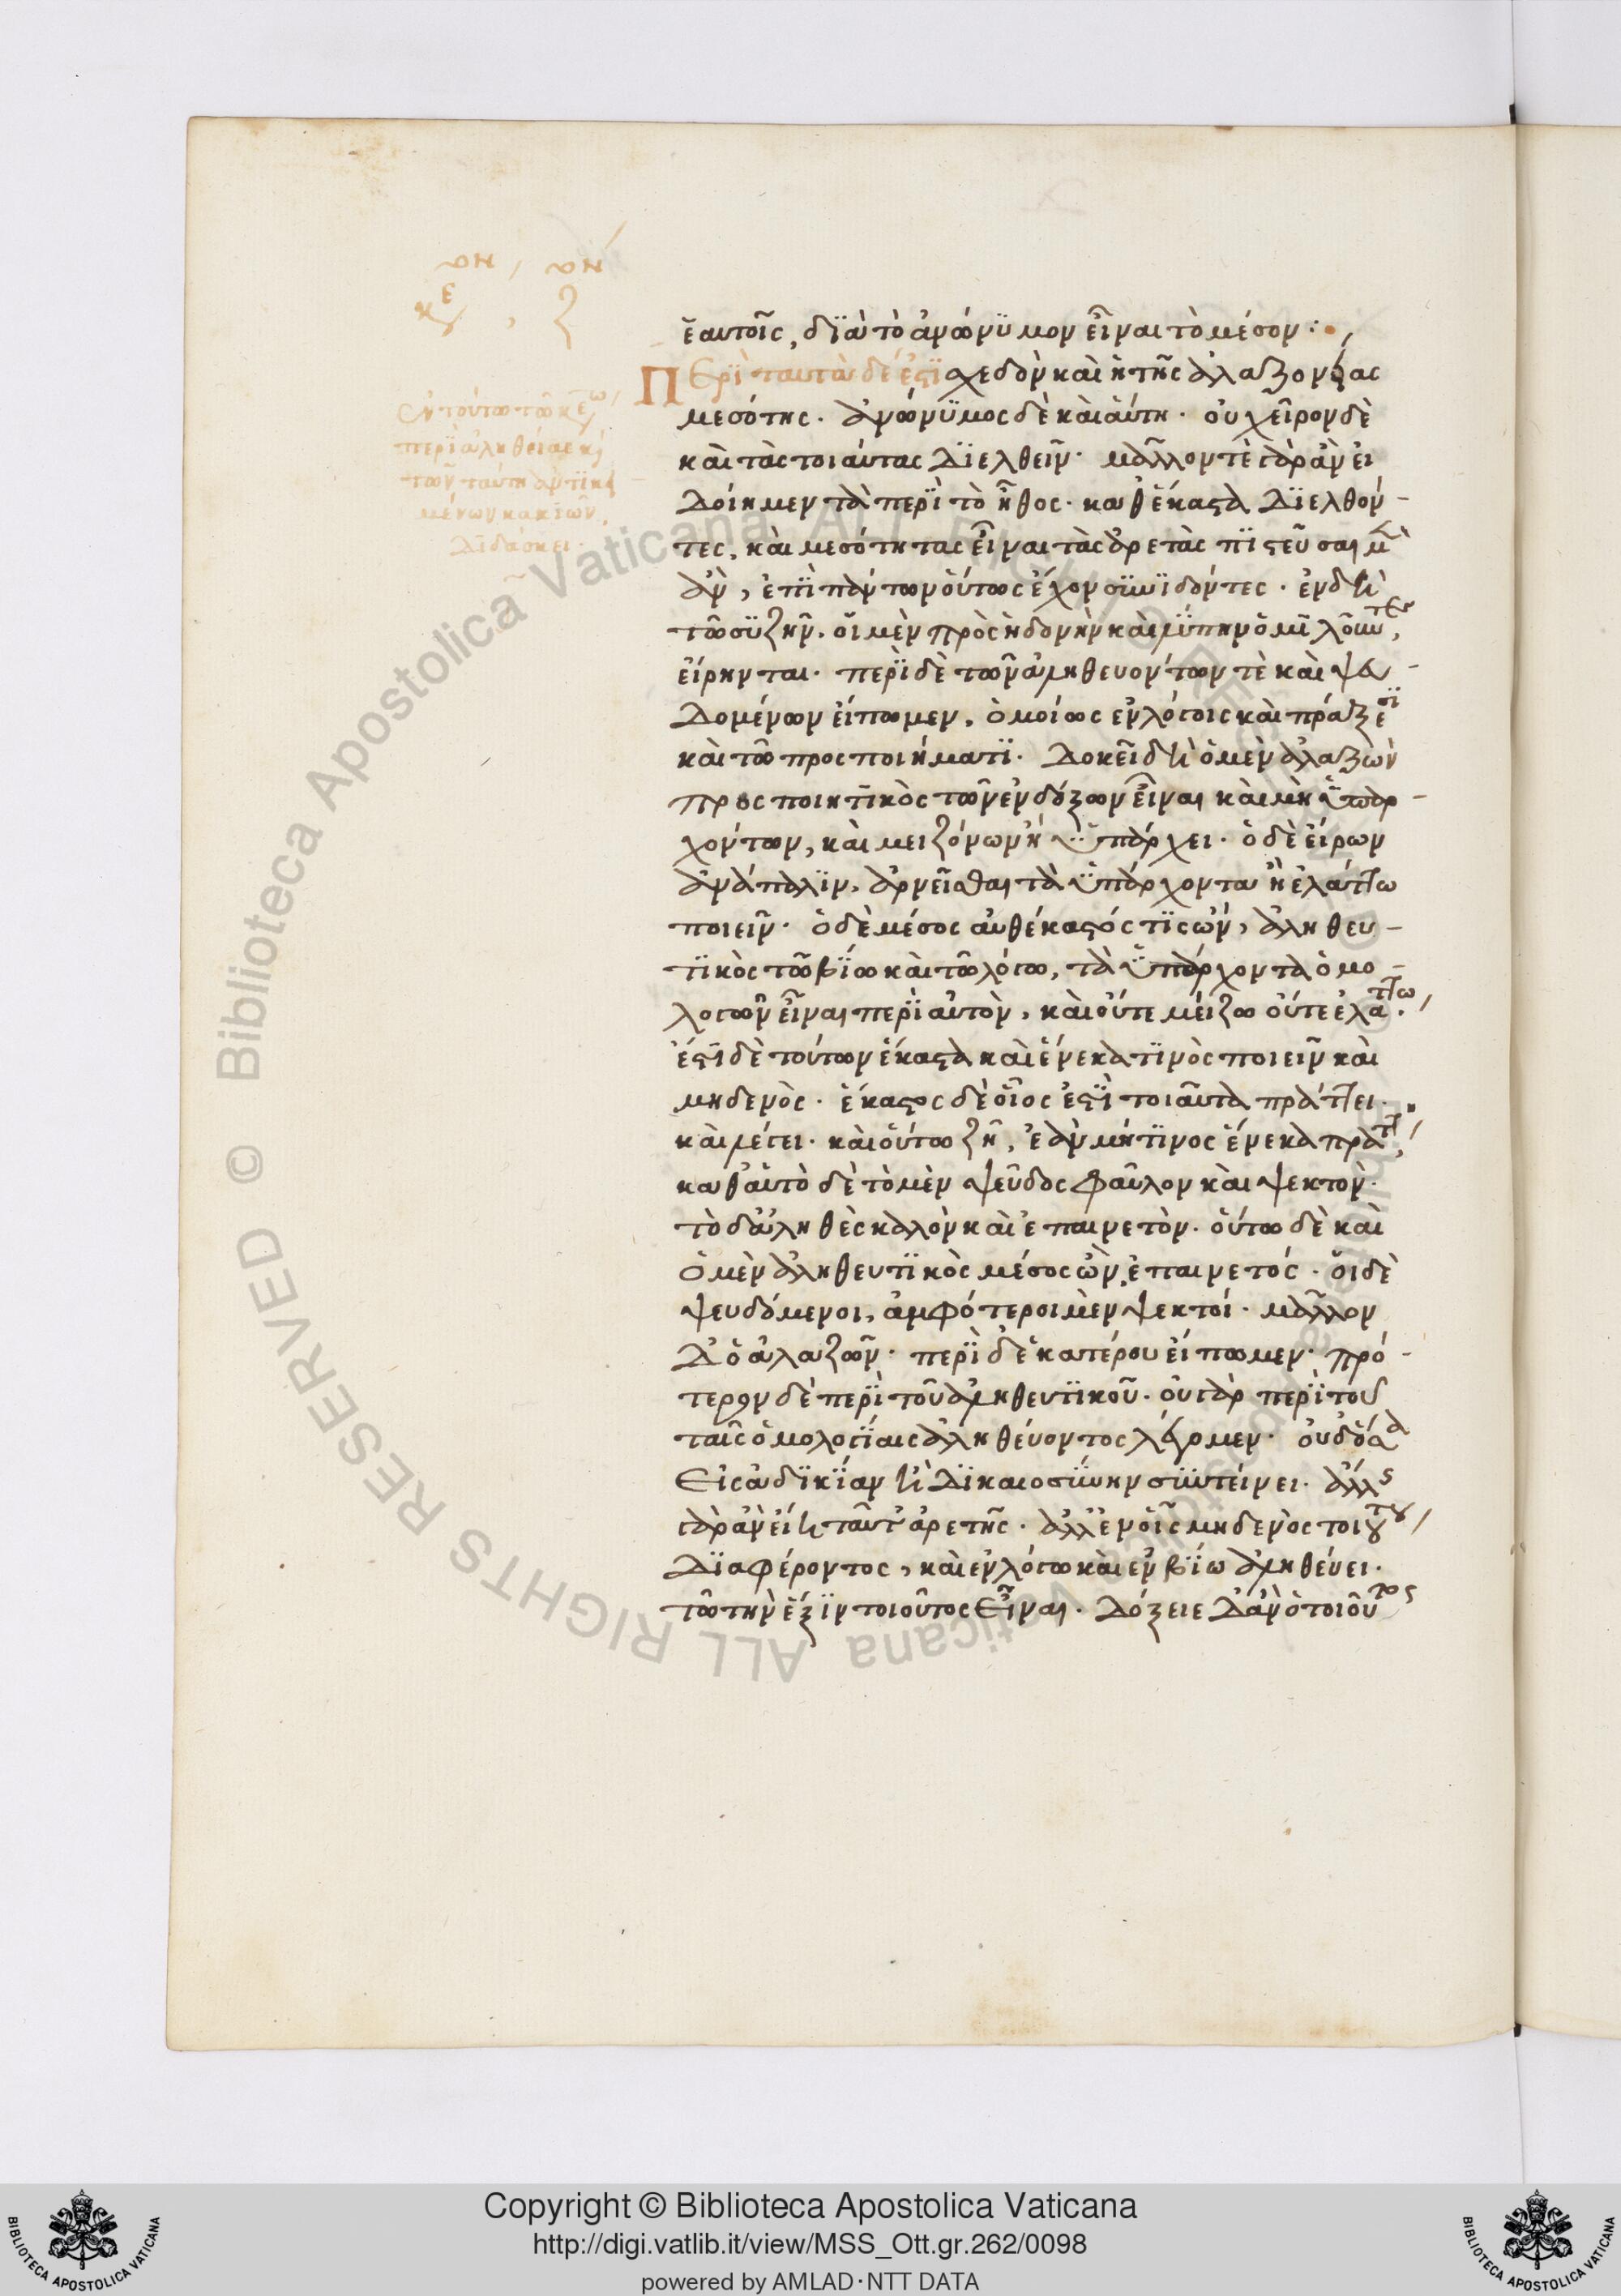 ἑαυτοῖς, διὰ τὸ ἀνώνυμον εἶναι τὸ μέσον :
Περὶ ταυτὰ δέ ἐστι σχεδὸν καὶ ἡ τῆς ἀλαζονείας
μεσότης. ἀνώνυμος δὲ καὶ αὐτή. οὐ χεῖρον δὲ
καὶ τὰς τοιαύτας διελθεῖν. μᾶλλόν τε γὰρ ἂν εἰ
δοίημεν τὰ περὶ τὸ ἦθος. καθ' ἕκαστα διελθόν-
τες, καὶ μεσότητας εἶναι τὰς ἀρετὰς πιστεύσαιμεν
ἄν, ἐπὶ πάντων οὕτως ἔχον συνιδόντες. ἐν δὴ
τῷ συζῆν. οἱ μὲν πρὸς ἡδονὴν καὶ λύπην ὁμιλοῦντες,
εἴρηνται. περὶ δὲ τῶν ἀληθευόντων τε καὶ ψευ-
δομένων εἴπωμεν, ὁμοίως ἐν λόγοις καὶ πράξεσι
καὶ τῷ προσποιήματι. δοκεῖ δὴ ὁ μὲν ἀλαζὼν
προσποιητικὸς τῶν ἐνδόξων εἶναι καὶ μὴ ὑπαρ-
χόντων, καὶ μειζόνων ἢ ὑπάρχει. ὁ δὲ εἴρων
ἀνάπαλιν, ἀρνεῖσθαι τὰ ὑπάρχοντα ἢ ἐλάττω
ποιεῖν. ὁ δὲ μέσος αὐθέκαστός τις ὤν, ἀληθευ-
τικὸς τῷ βίῳ καὶ τῷ λόγῳ, τὰ ὑπάρχοντα ὁμο-
λογῶν εἶναι περὶ αὐτὸν, καὶ οὔτε μείζω οὔτε ἐλάττω.
ἔστι δὲ τούτων ἕκαστα καὶ ἕνεκά τινος ποιεῖν καὶ
μηδενός. ἕκαστος δὲ οἷός ἐστι τοιαῦτα πράττει.
καὶ λέγει. καὶ οὕτω ζῇ, ἐὰν μή τινος ἕνεκα πράττῃ,
καθ' αὑτὸ δὲ τὸ μὲν ψεῦδος φαῦλον καὶ ψεκτόν.
τὸ δ' ἀληθὲς καλὸν καὶ ἐπαινετόν. οὕτω δὲ καὶ
ὁ μὲν ἀληθευτικὸς μέσος ὢν, ἐπαινετός. οἱ δὲ
ψευδόμενοι, ἀμφότεροι μὲν ψεκτοί. μᾶλλον
δ' ὁ ἀλαζών. περὶ δ' ἑκατέρου εἴπωμεν. πρό-
τερον δὲ περὶ τοῦ ἀληθευτικοῦ. οὐ γὰρ περὶ τοῦ
ταῖς ὁμολογίαις ἀληθεύοντος λέγομεν. οὐδ' ὅσα
εἰς ἀδικίαν ἢ δικαιοσύνην συντείνει. ἄλλης
γὰρ ἂν εἴη ταῦτ' ἀρετῆς. ἀλλ' ἐν οἷς μηδενὸς τοιούτου
διαφέροντος, καὶ ἐν λόγῳ καὶ ἐν βίῳ ἀληθεύει.
τῷ τὴν ἕξιν τοιοῦτος εἶναι. δόξειε δ' ἂν ὁ τοιοῦτος
Ἐν τούτῳ τῷ κεφαλαίῳ
περὶ ἀληθείας καὶ
τῶν ταύτῃ ἀντικει-
μένων κακιῶν,
διδάσκει.
Copyright © Biblioteca Apostolica Vaticana
http://digi.vatlib.it/view/MSS_Ott.gr.262/0098
powered by AMLAD·NTT DATA
BIBLIOTECA APOSTOLICA VATICANA
BIBLIOTECA APOSTOLICA VATICANA
© Biblioteca Apostolica Vaticana ALL RIGHTS RESERVED